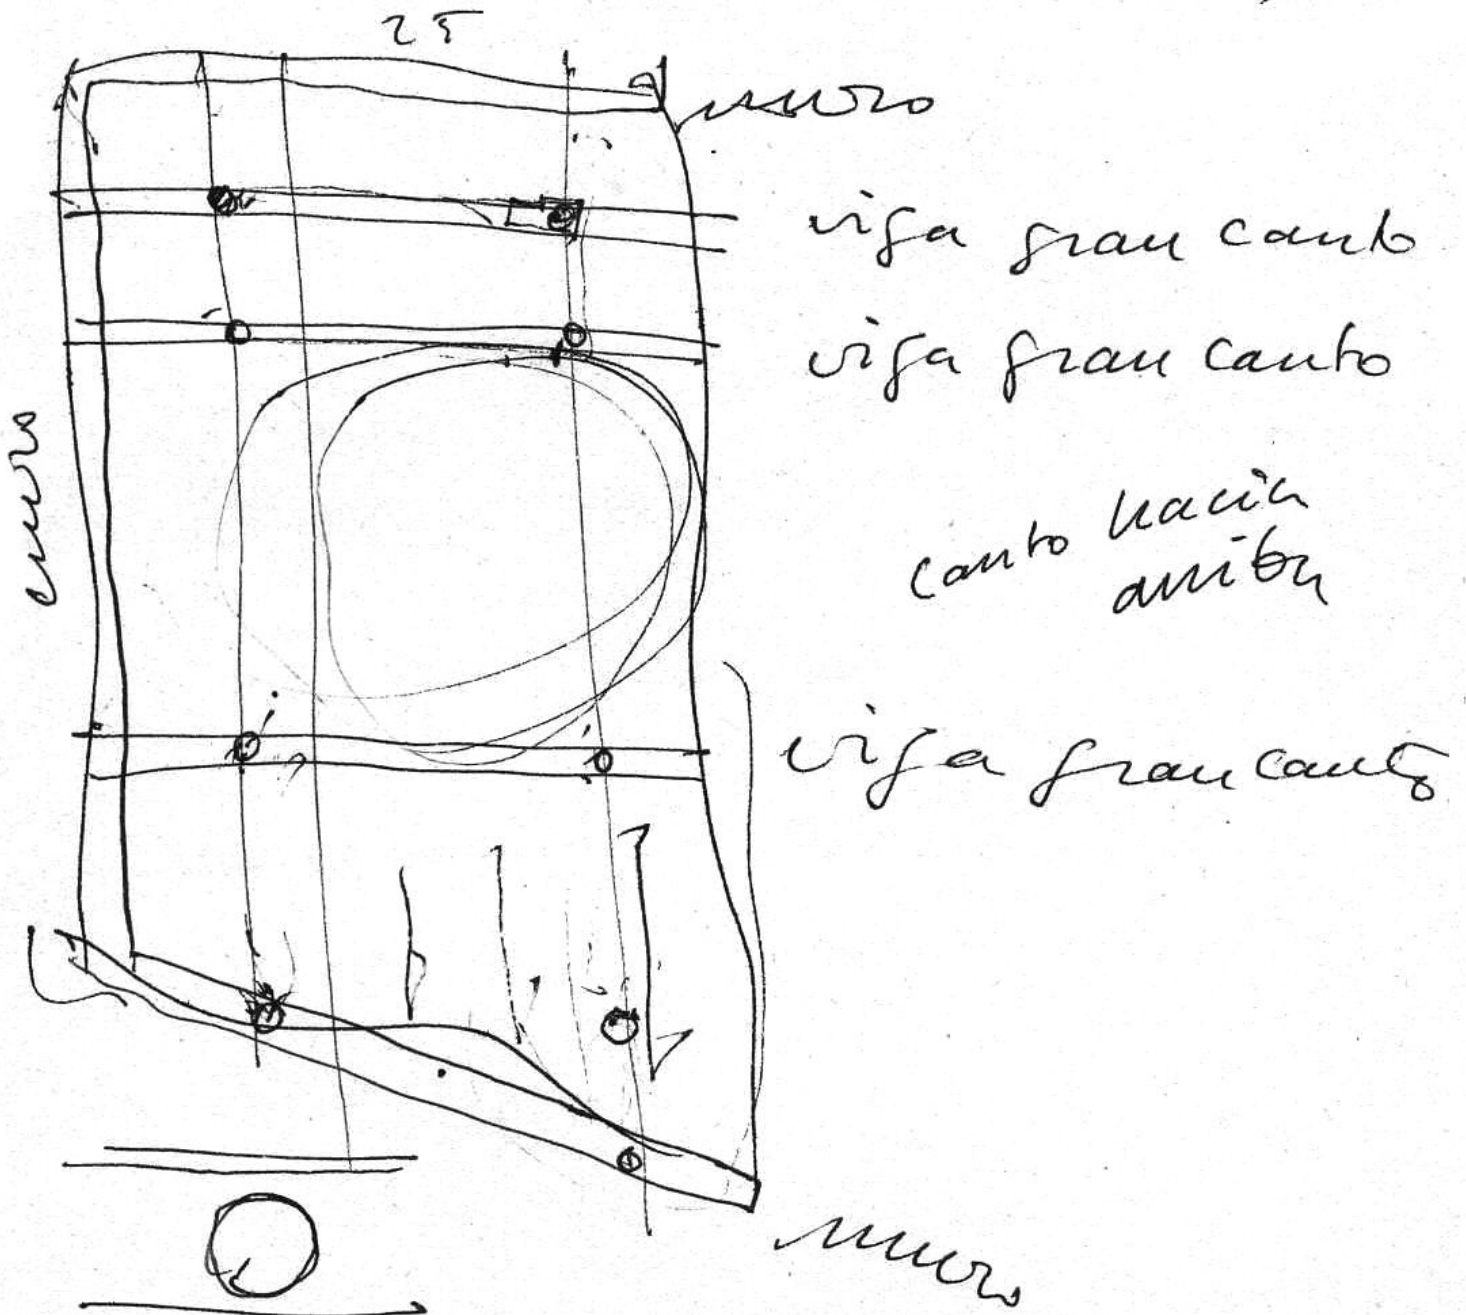 25
muro
viga gran canto
viga gran canto
muro
canto hacia
arriba
viga gran canto
muro